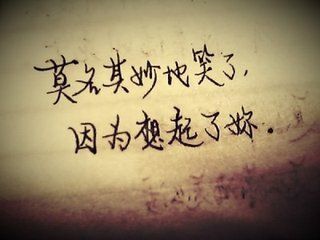 莫名其妙地笑了,
因为想起了妳.